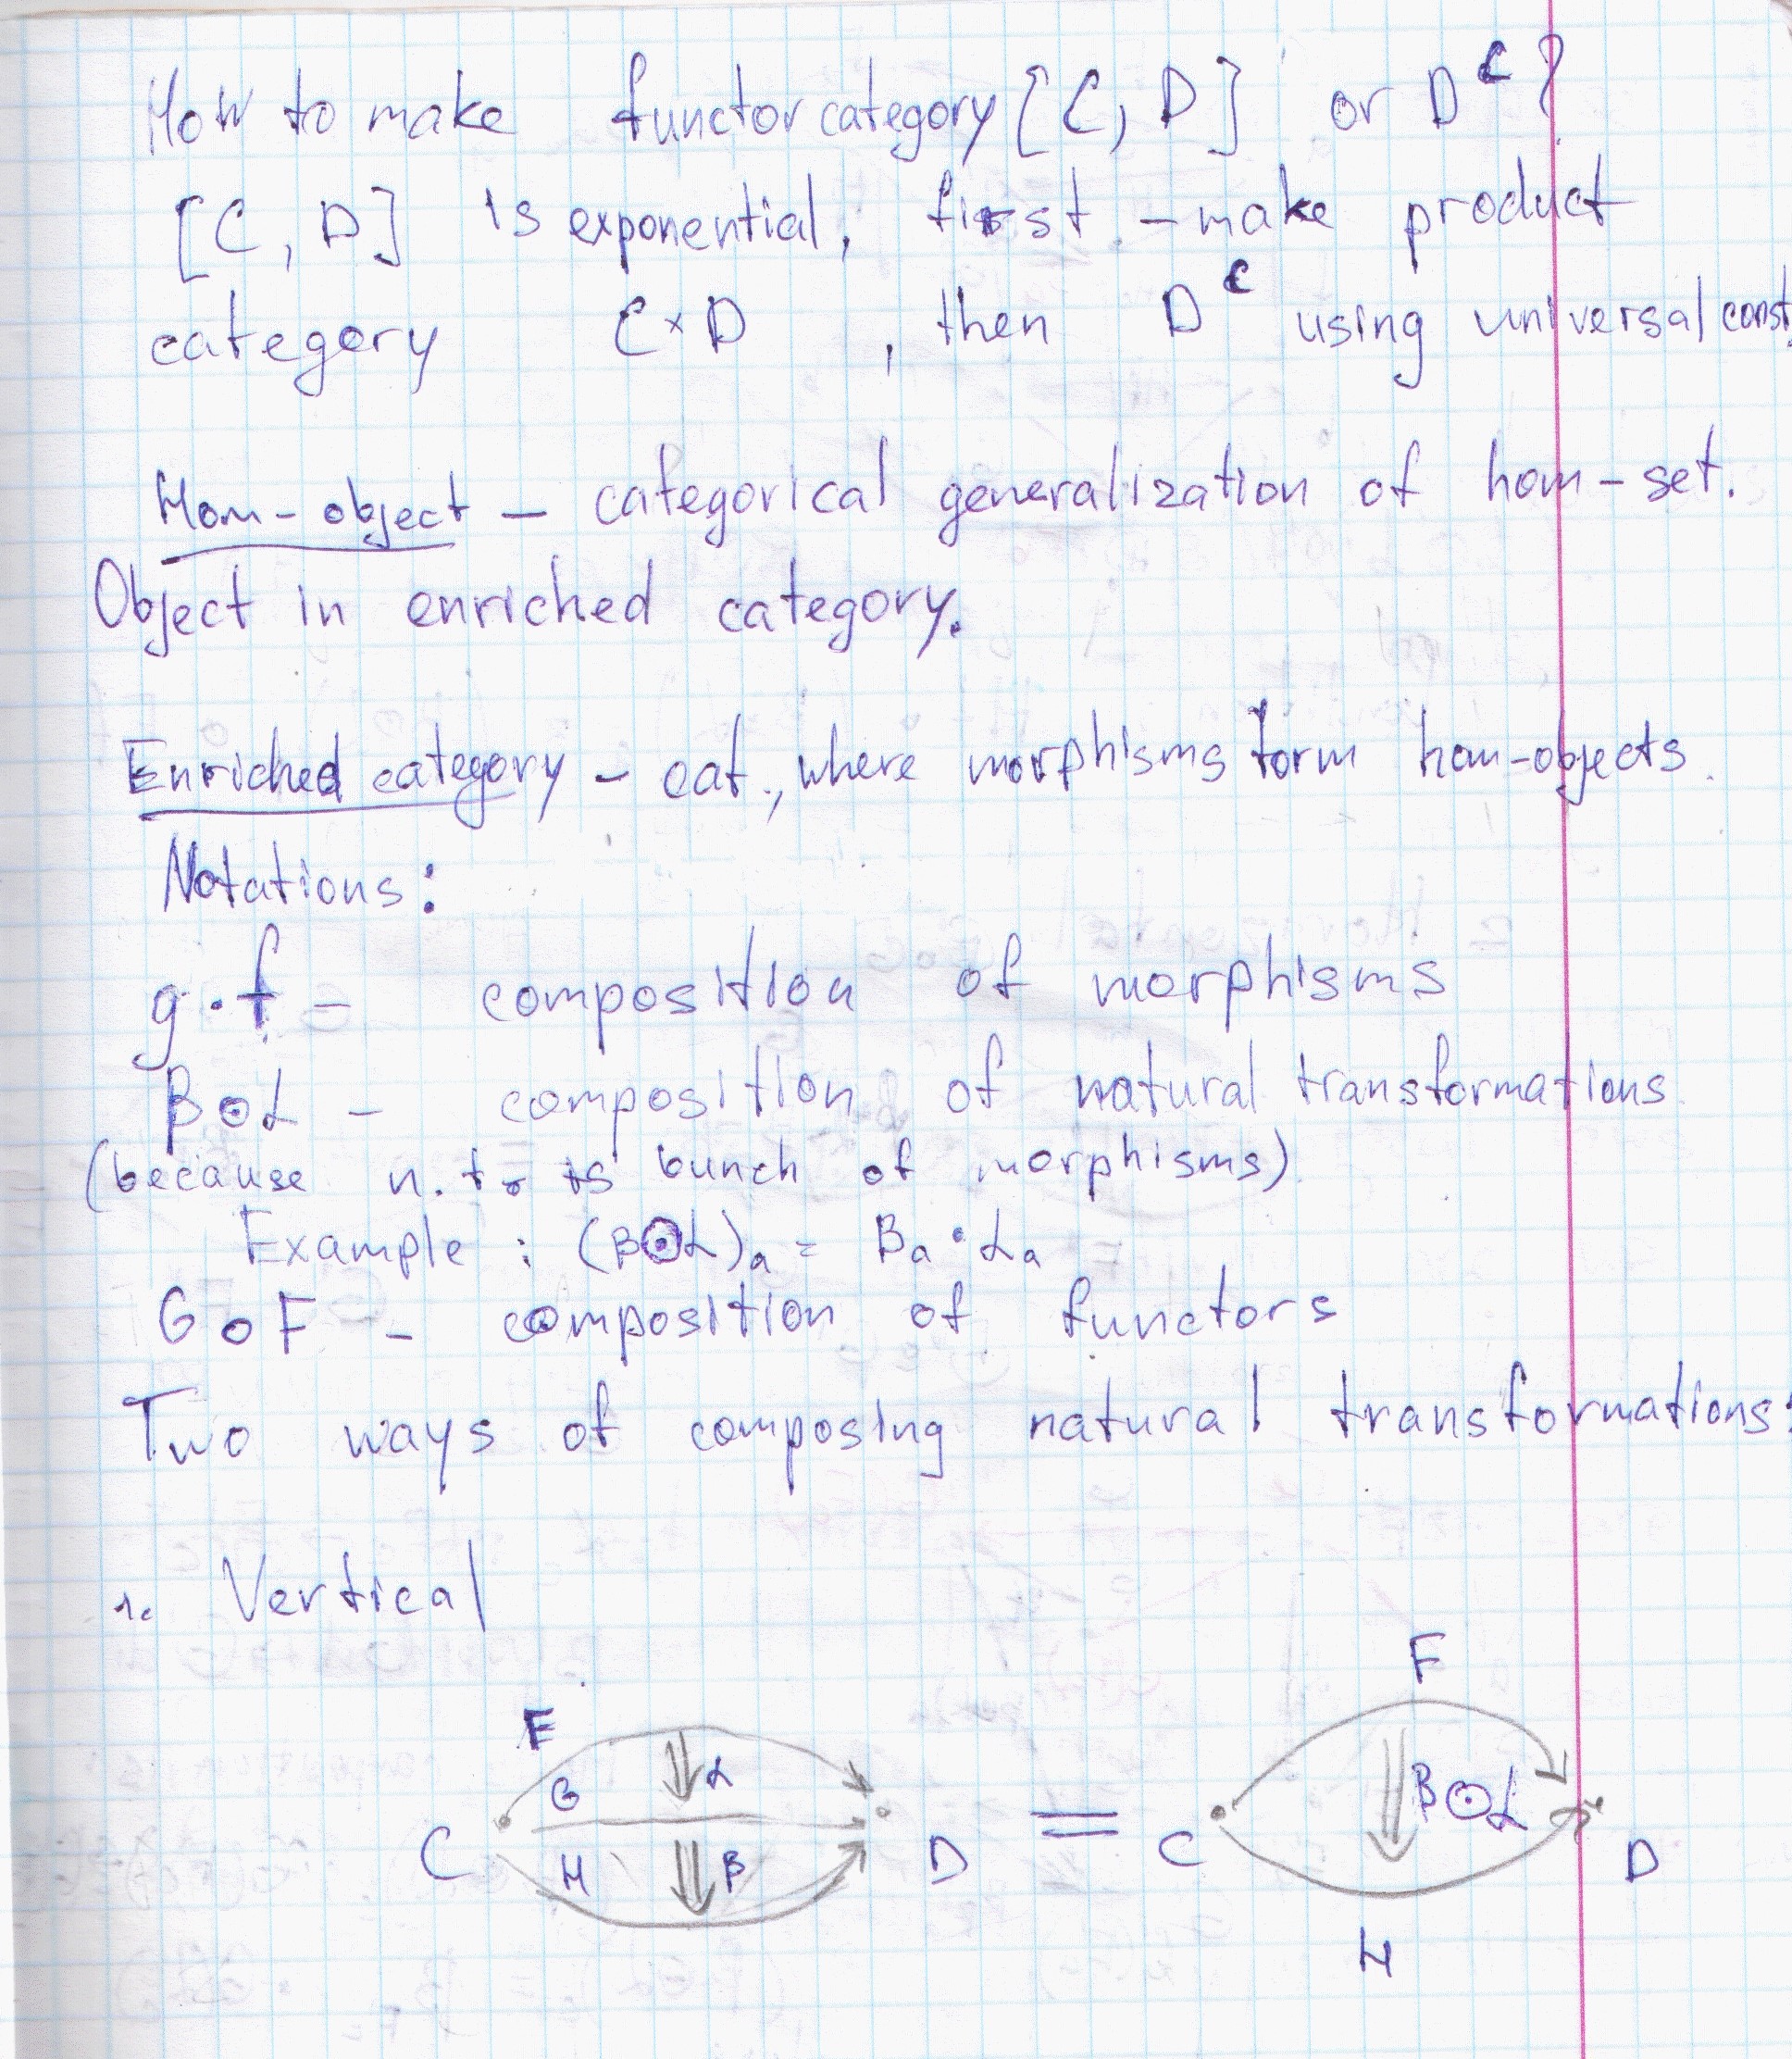 How to make functor category [C, D] or D^C?
[C, D] is exponential, first - make product
category C×D , then D^C using universal const.
Hom-object – categorical generalization of hom-set.
Object in enriched category.
Enriched category – cat., where morphisms form hom-objects.
Notations:
g·f – composition of morphisms
β⊙α – composition of natural transformations
(because n.t. is bunch of morphisms)
Example : (β⊙α)ₐ = βₐ·αₐ
G∘F – composition of functors
Two ways of composing natural transformations:
1. Vertical
F
F
α
G
β⊙α
C
D
=
C
D
H
β
H